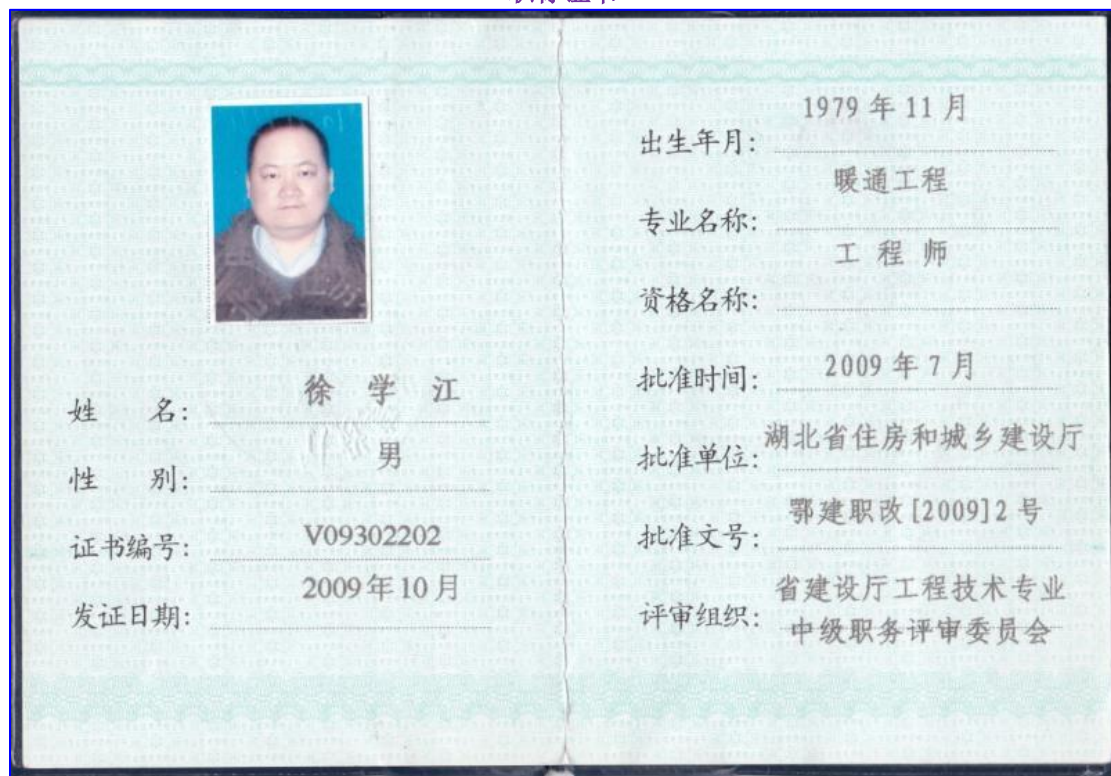 姓 名: 徐 学 江
性 别: 男
证书编号: V09302202
发证日期: 2009年10月
出生年月: 1979 年 11 月
专业名称: 暖通工程
资格名称: 工 程 师
批准时间: 2009 年 7 月
批准单位: 湖北省住房和城乡建设厅
批准文号: 鄂建职改[2009]2 号
评审组织: 省建设厅工程技术专业
中级职务评审委员会